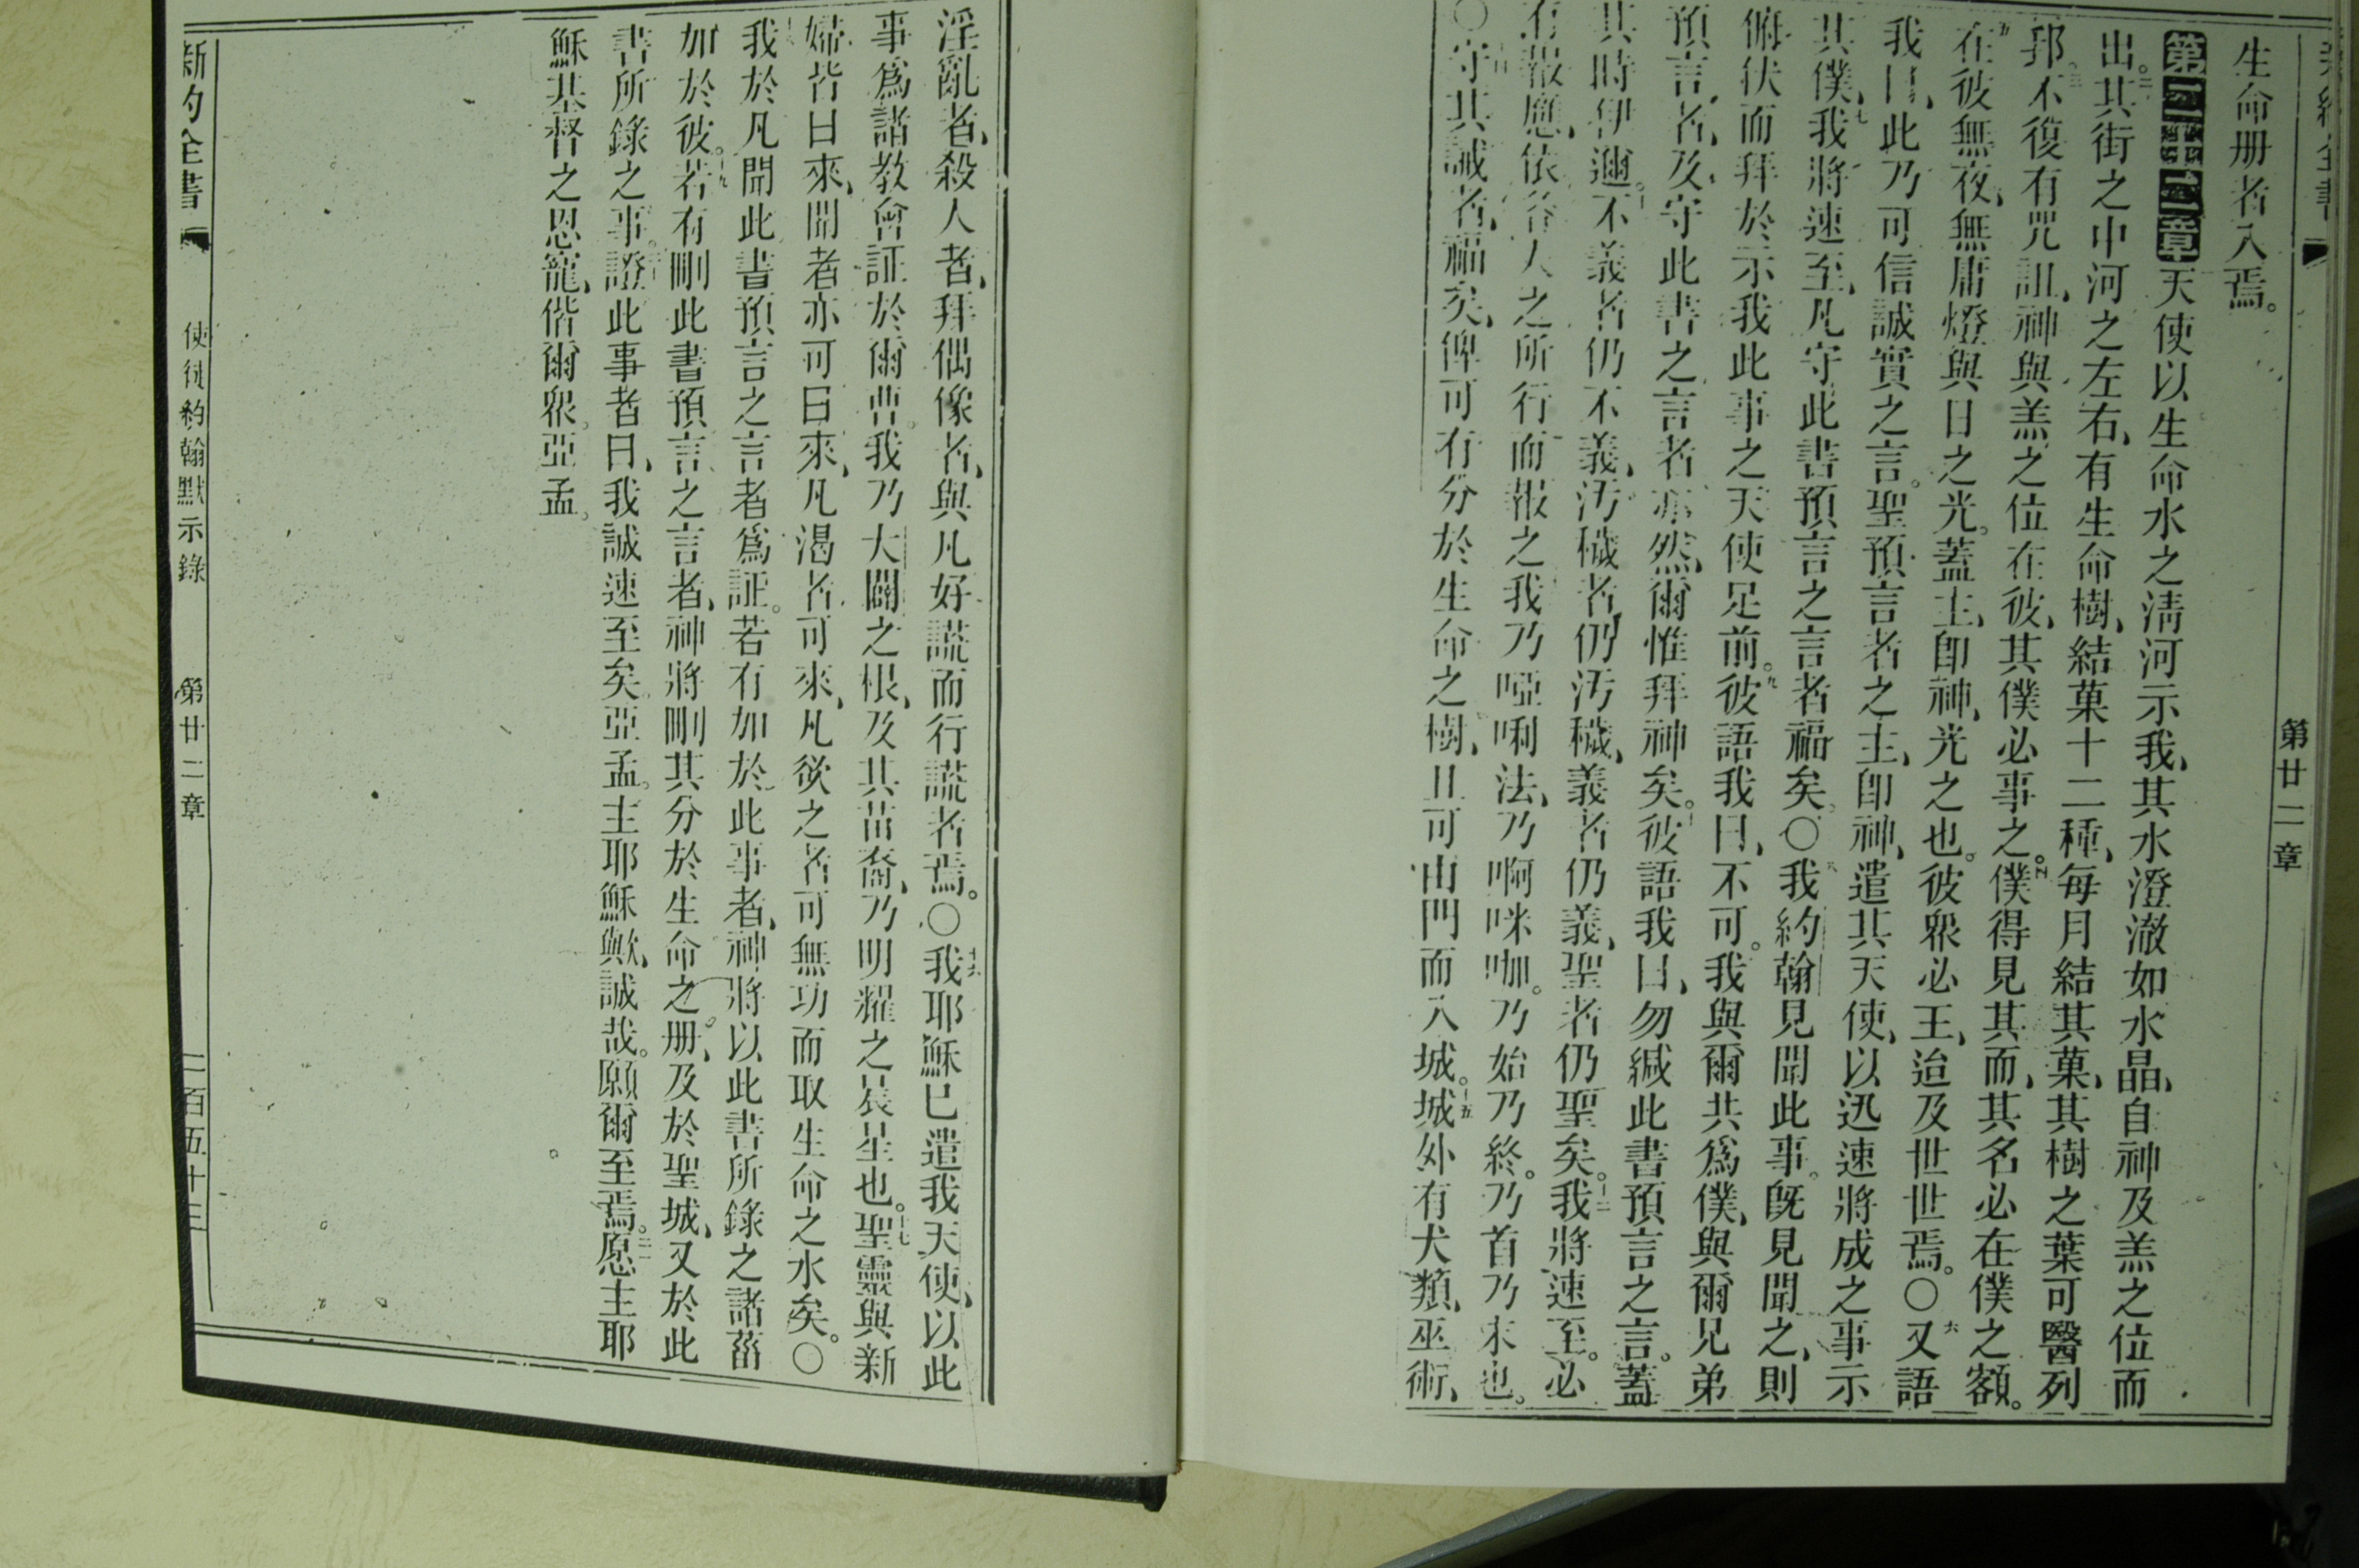 第廿二章
生命册者入焉。
第二十二章天使以生命水之清河示我、其水澄澈如水晶、自神及羔之位而
出。二其街之中河之左右、有生命樹、結菓十二種、每月結其菓、其樹之葉可醫列
邦。三不復有咒詛、神與羔之位在彼、其僕必事之。四僕得見其面、其名必在僕之額。
五在彼無夜、無庸燈與日之光。蓋主、即神、光之也。彼衆必王、迨及世世焉。〇六又語
我曰、此乃可信誠實之言。聖預言者之主、即神、遣其天使、以迅速將成之事示
其僕、七我將速至、凡守此書預言之言者福矣。〇八我約翰見聞此事。既見聞之、則
俯伏而拜於示我此事之天使足前。九彼語我曰、不可。我與爾共爲僕、與爾兄弟
預言者、及守此書之言者亦然、爾惟拜神矣。十彼語我曰、勿緘此書預言之言。蓋
其時伊邇。十一不義者仍不義、汚穢者仍汚穢、義者仍義、聖者仍聖矣。十二我將速至。必
有報應、依各人之所行而報之我乃啞唎法、乃啊咪咖。乃始乃終。乃首乃末也。
〇十四守其誡者、福矣、俾可有分於生命之樹、且可由門而入城。十五城外有犬類、巫術、
淫亂者、殺人者、拜偶像者、與凡好謊而行謊者焉。〇十六我耶穌已遣我天使、以此
事爲諸敎會証於爾曹。我乃大闢之根、及其苗裔、乃明耀之晨星也。十七聖靈與新
婦皆曰來、聞者亦可曰來、凡渴者可來、凡欲之者可無功而取生命之水矣。〇
我於凡聞此書預言之言者爲証。若有加於此事者、神將以此書所錄之諸菑
加於彼。十九若有刪此書預言之言者、神將刪其分於生命之册、及於聖城、又於此
書所錄之事。二十證此事者曰、我誠速至矣。亞孟。主耶穌歟、誠哉。願爾至焉。二一愿主耶
穌基督之恩寵、偕爾衆。亞孟。
新約全書
使徒約翰默示錄
第廿二章
二百五十三